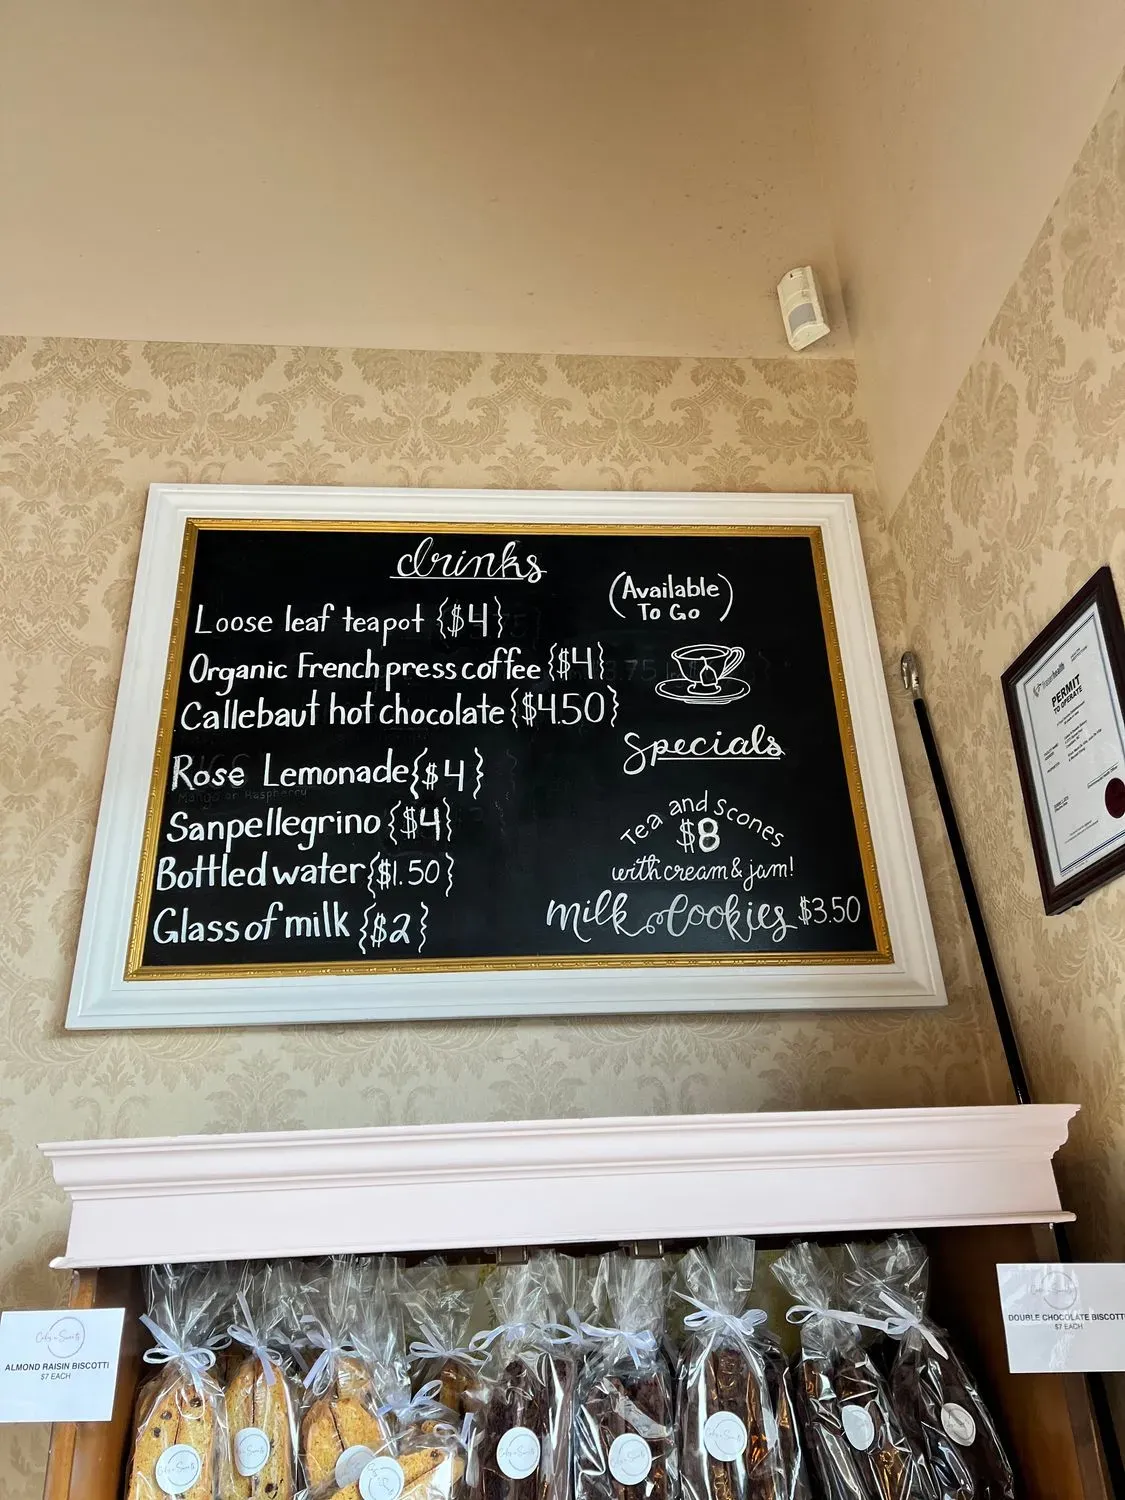 drinks
(Available
To Go)
Loose leaf teapot {$4}
Organic French press coffee {$4}
Callebaut hot chocolate {$4.50}
Rose Lemonade {$4}
Mango or Raspberry
Sanpellegrino {$4}
Bottled water {$1.50}
Glass of milk {$2}
Specials
Tea and Scones
$8
with cream & jam!
Milk & Cookies $3.50
fraserhealth
PERMIT
TO OPERATE
ALMOND RAISIN BISCOTTI
$7 EACH
DOUBLE CHOCOLATE BISCOTTI
$7 EACH